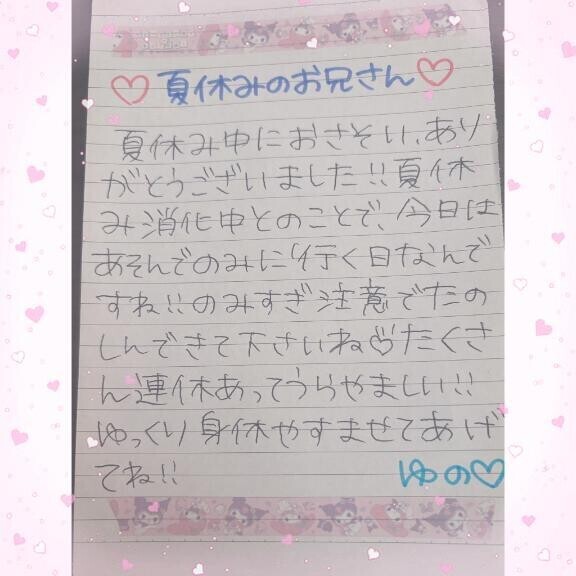 ♡夏休みのお兄さん♡
夏休み中におさそい、あり
がとうございました!!夏休
み消化中とのことで、今日は
あそんでのみに行く日なんで
すね!!のみすぎ注意でたの
しんできて下さいね♡たくさ
ん連休あってうらやましい!!
ゆっくり身休やすませてあげ
てね!!
ゆの♡